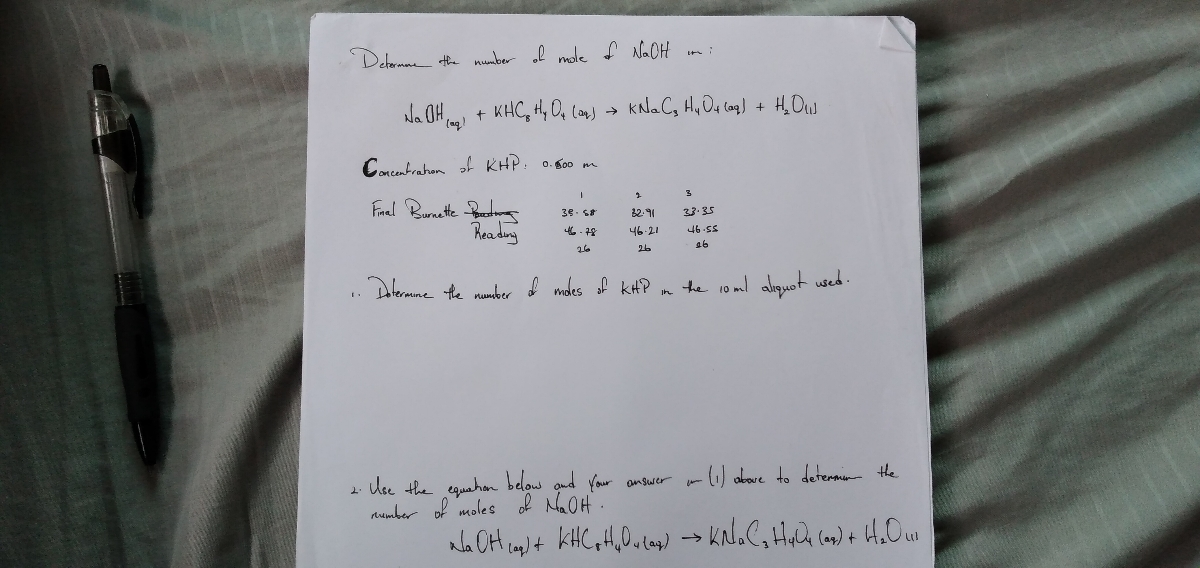 Determine the number of mole of NaOH in :
NaOH(aq) + KHC8H4O4 (aq) → KNaC3H4O4 (aq) + H2O(l)
Concentration of KHP: 0.600 m
1 2 3
Final Burnette 38.58 32.91 33.35
Reading 46.78 46.21 46.55
26 26 26
1. Determine the number of moles of KHP in the 10 ml aliquot used.
2. Use the equation below and your answer in (1) above to determin the
number of moles of NaOH.
NaOH (aq) + KHC8H4O4 (aq) → KNaC3H4O4 (aq) + H2O(l)